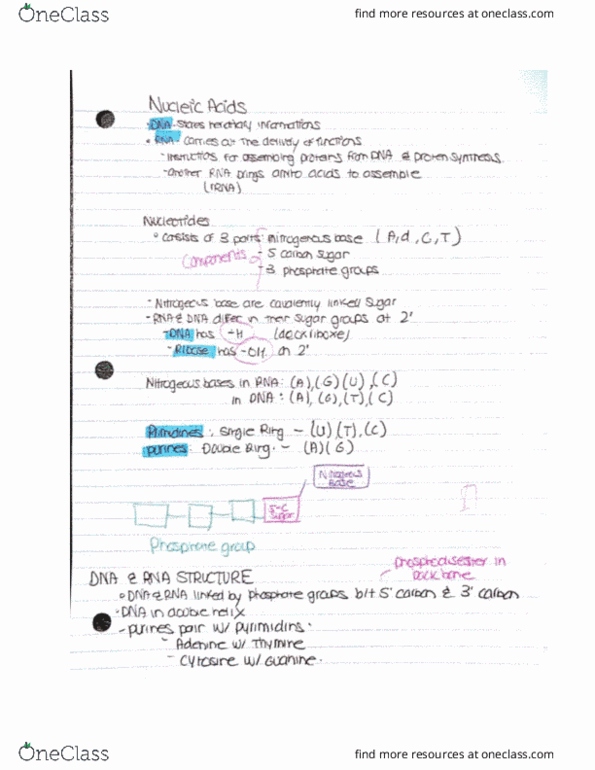 OneClass
find more resources at oneclass.com
Nucleic Acids
·DNA-stores hereditary informations
• RNA- carries out the delivery of functions
-instructions for assembling proteins from DNA & protein synthesis
-another RNA brings amino acids to assemble
(tRNA)
Nucleotides
° consists of 3 parts: nitrogenous base (A,G,C,T)
Components - 5 carbon sugar
-3 phosphate groups
·Nitrogeous base are covalently linked sugar
-RNA & DNA differ in their sugar groups at 2'
-DNA has -H (deoxyribose)
-Ribose has -OH on 2'
Nitrogeous bases in RNA: (A),(G)(U),(C)
in DNA: (A), (G),(T),(C)
Pirimidines: Single Ring - (U)(T),(C)
purines: Double Ring. - (A)(G)
Nitrogenous
Base
5-C
sugar
Phosphate group
phosphodiester in
backbone
DNA & RNA STRUCTURE
°DNA & RNA linked by phosphate groups b/t 5' carbon & 3' carbon
·DNA in double helix
-purines pair w/ pyrimidins·
- Adenine w/ Thymine
- Cytosine w/ Guanine.
OneClass
find more resources at oneclass.com